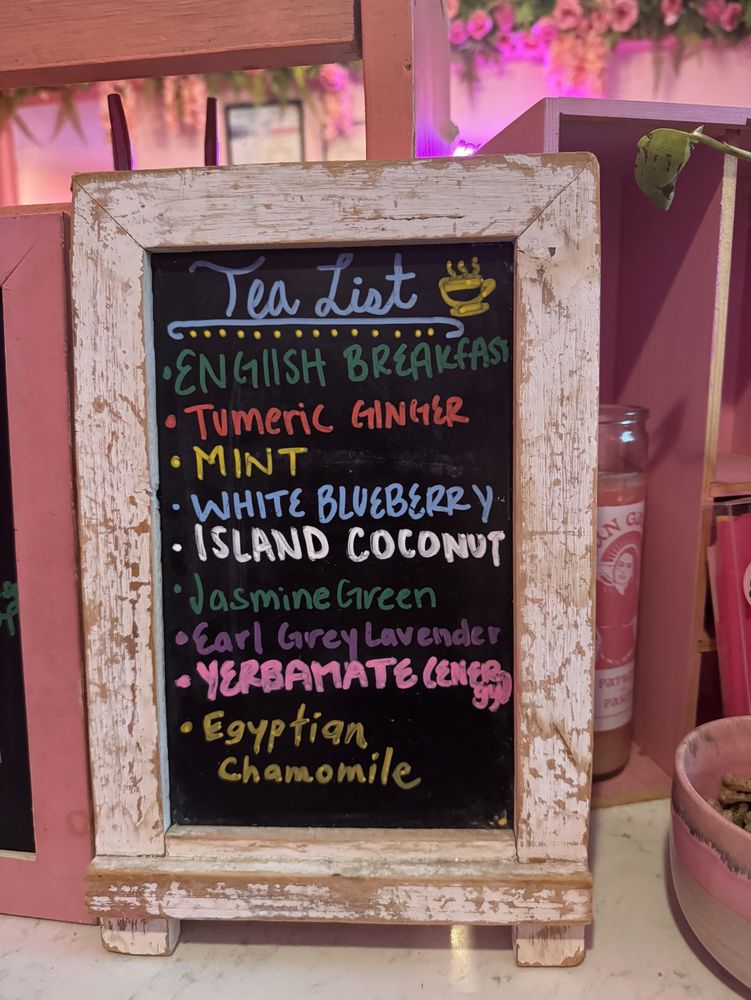 Tea List
• ENGlISH BREAKfAST
• Tumeric GINGER
• MINT
• WHITE BLUEBERRY
• ISLAND COCONUT
• Jasmine Green
• Earl Grey Lavender
• YERBAMATE (ENER
gy)
• Egyptian
Chamomile